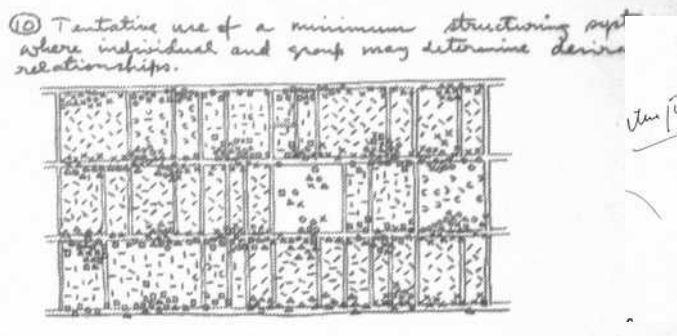 ⑩ Tentative use of a minimum structuring
where individual and group may determine
relationships.